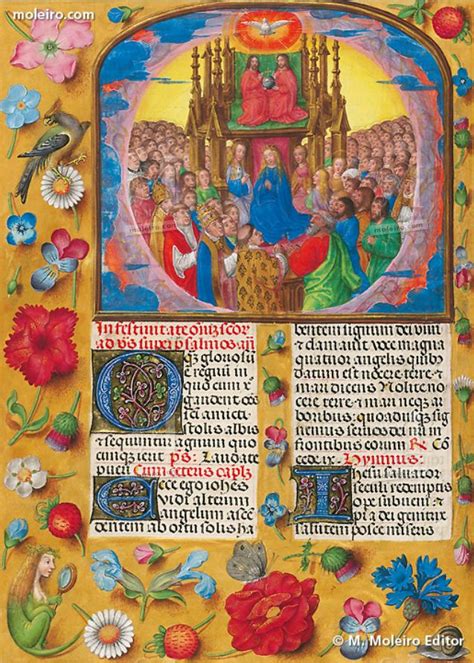 moleiro.com
moleiro.com
moleiro.com
In festiuitate om̄iz scōr
ad vs̄ super psalmos añ
O q̄z gloriosū
ē regnū in
quo cum x̄
gaudent oēs
sc̄ti amicti
stolis albis
et sequuntur agnum quo
cunq̄z ierit ps̄ Laudate
pueri Cum ceteris caplz
Ecce ego ioh̄es
vidi alterum
angelum asce
dentem ab ortu solis ha
bentem signum dei viui
et clamauit voce magna
quatuor angelis quibus
datum est nocere terre et
mari dicens Nolite noce
re terre et mari neq̄z ar
boribus quoadusq̄z sig
nemus seruos dei nr̄i in
frontibus eorum
Hymnus
Ihesu saluator
seculi redemptis
ope subueni et
pia dei genitrix
salutem posce miseris
© M. Moleiro Editor